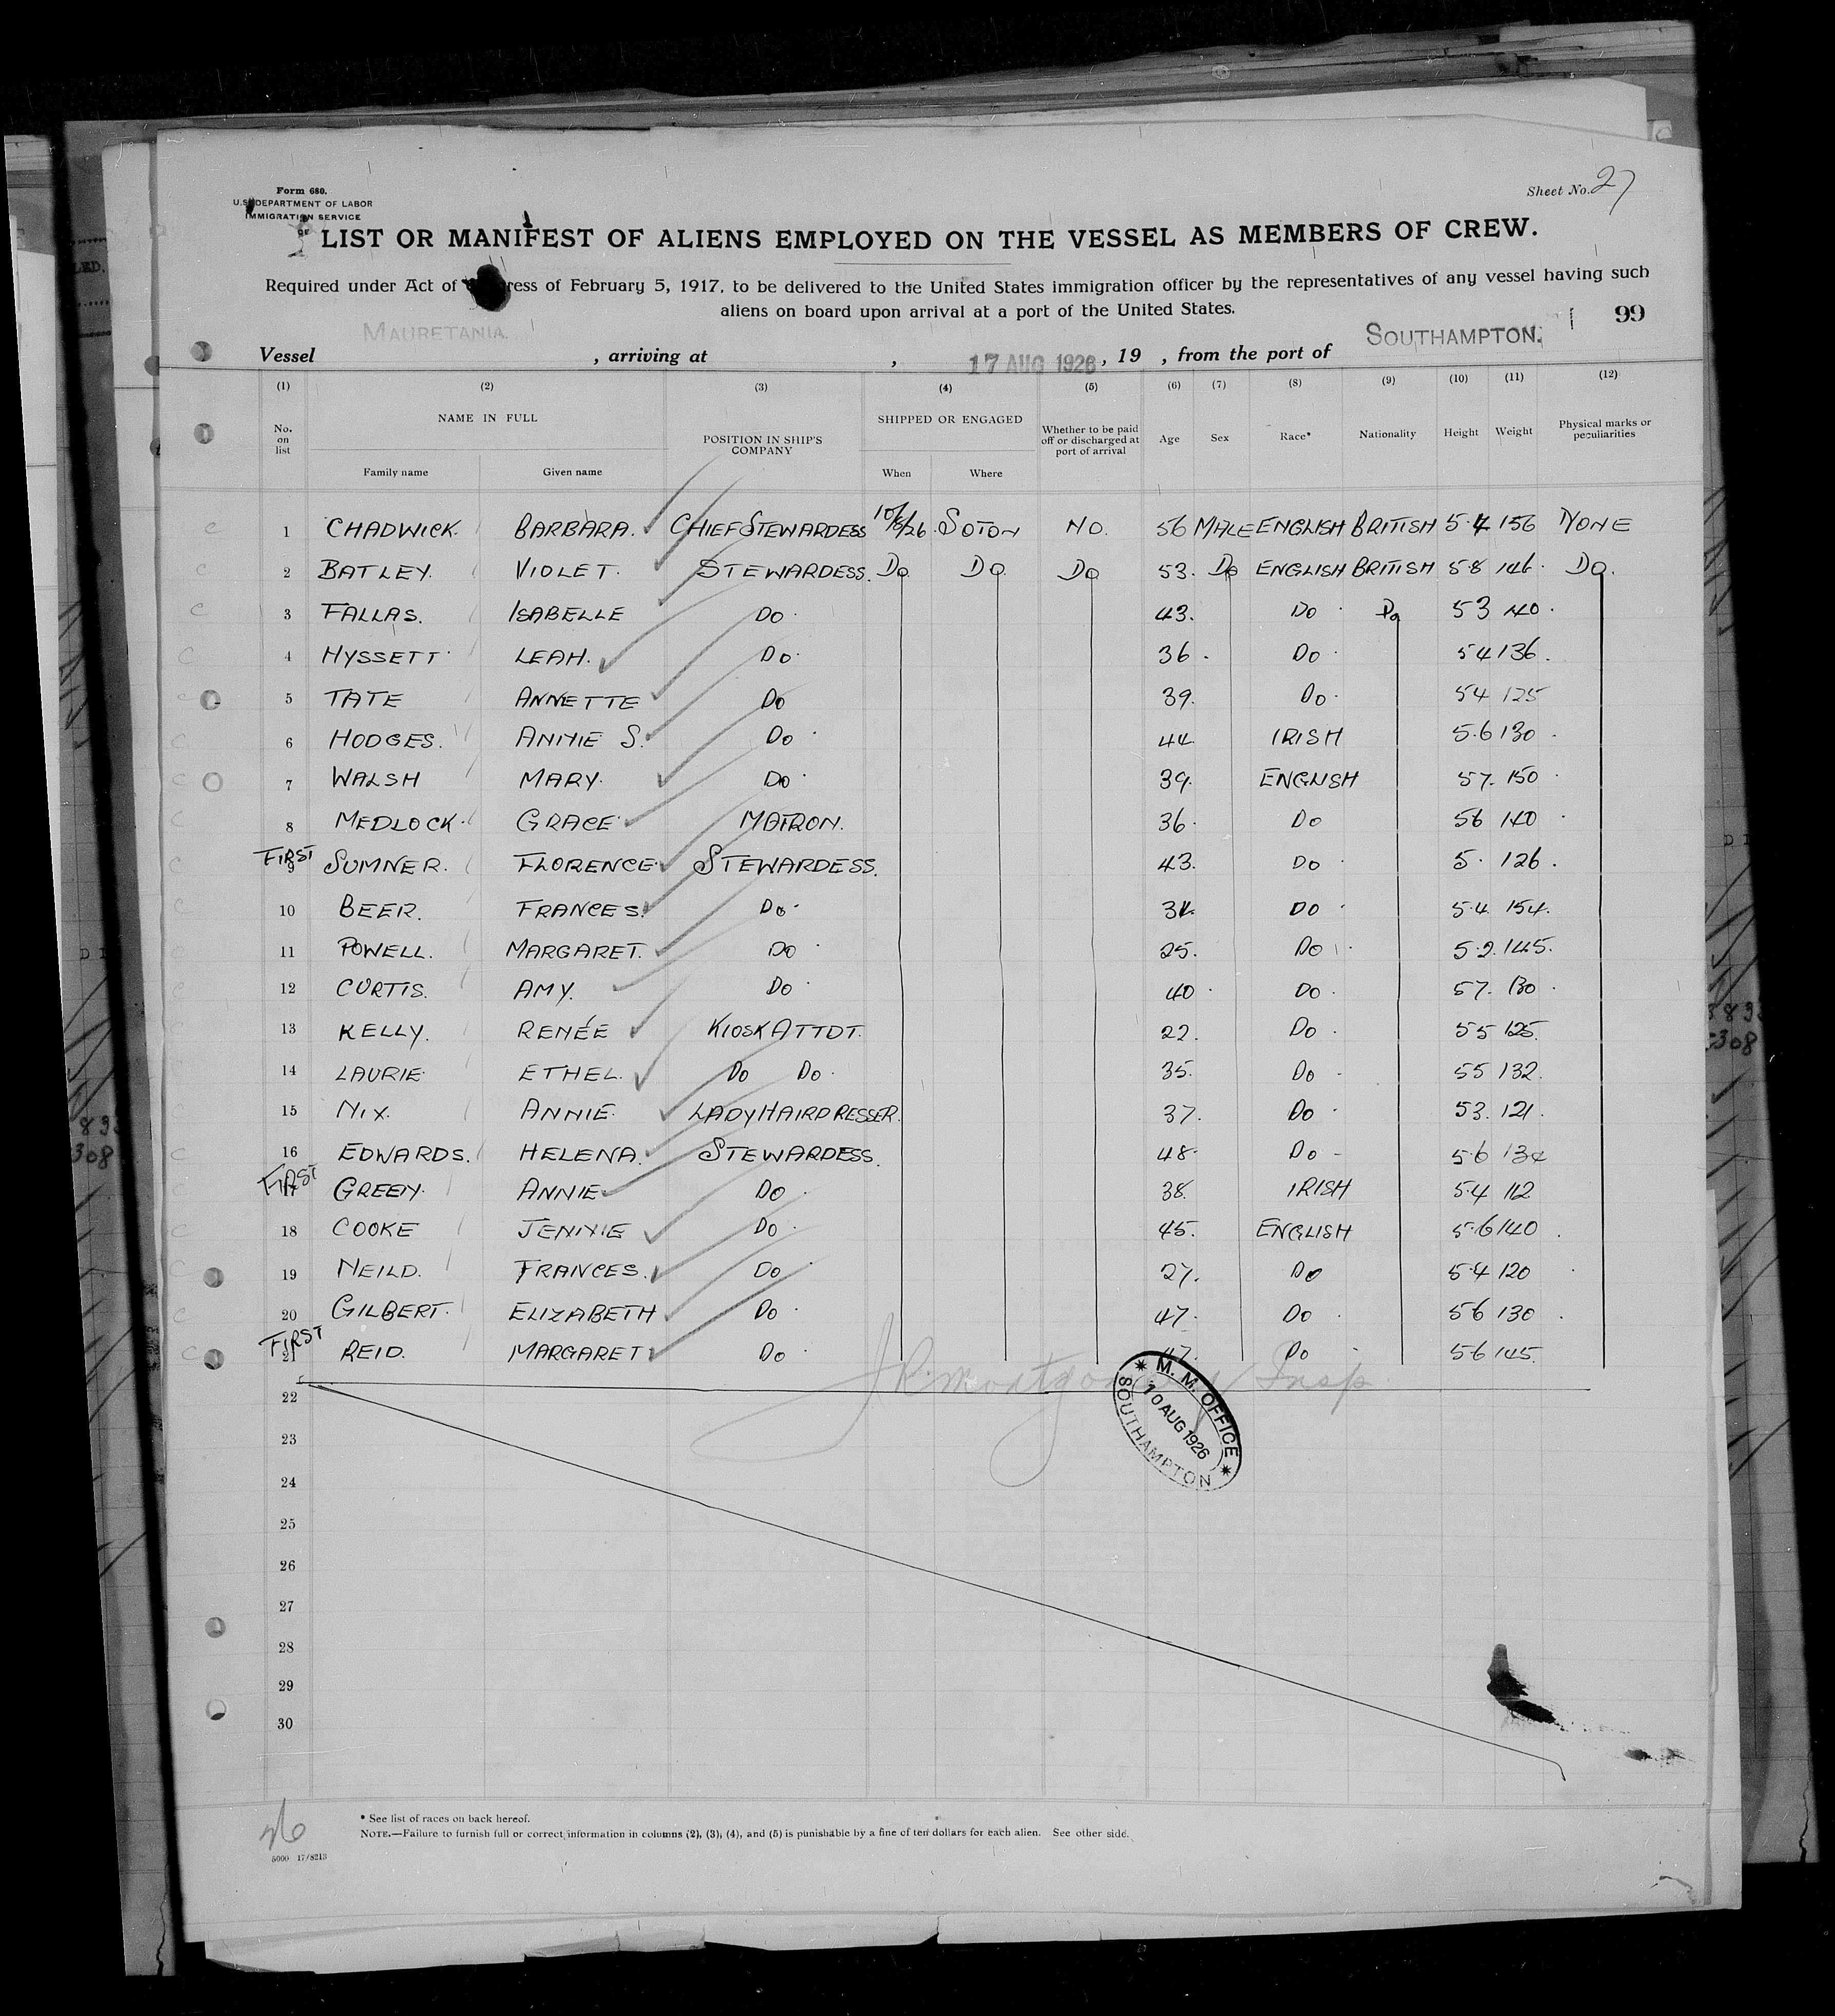 Form 680.
U.S. DEPARTMENT OF LABOR
IMMIGRATION SERVICE
Sheet No. 27
LIST OR MANIFEST OF ALIENS EMPLOYED ON THE VESSEL AS MEMBERS OF CREW.
Required under Act of ress of February 5, 1917, to be delivered to the United States immigration officer by the representatives of any vessel having such
aliens on board upon arrival at a port of the United States.
99
Vessel MAURETANIA. , arriving at , 17 AUG 1926 , 19 , from the port of SOUTHAMPTON.
(1) (2) (3) (4) (5) (6) (7) (8) (9) (10) (11) (12)
No. on list NAME IN FULL POSITION IN SHIP'S COMPANY SHIPPED OR ENGAGED Whether to be paid off or discharged at port of arrival Age Sex Race* Nationality Height Weight Physical marks or peculiarities
Family name Given name When Where
1 CHADWICK. BARBARA. CHIEF STEWARDESS 10/8/26. SOTON NO. 56 MALE ENGLISH BRITISH 5.4 156 NONE
2 BATLEY. VIOLET. STEWARDESS. DO DO DO 53. DO ENGLISH BRITISH 58 146. DO.
3 FALLAS. ISABELLE DO. 43. DO. DO 53 140.
4 HYSSETT LEAH. DO. 36. DO. 54 136.
5 TATE ANNETTE DO 39. DO. 54 125
6 HODGES. ANNIE S. DO. 44 IRISH 5.6 130.
7 WALSH MARY. DO. 39. ENGLISH 57. 150.
8 MEDLOCK. GRACE MATRON. 36. DO 56 140.
FIRST 9 SUMNER. FLORENCE. STEWARDESS. 43. DO. 5. 126.
10 BEER. FRANCES. DO. DO. 5.4 154.
11 POWELL. MARGARET. DO. 25. DO. 5.2. 145.
12 CURTIS. AMY. DO. 40. DO. 57. 130.
13 KELLY. RENÉE KIOSK ATTDT. 22. DO. 55 125.
14 LAURIE. ETHEL. DO DO. 35. DO. 55 132.
15 NIX. ANNIE. LADY HAIRDRESSER. 37. DO. 53. 121.
16 EDWARDS. HELENA. STEWARDESS. 48. DO 5.6 134
FIRST 17 GREEN. ANNIE DO. 38. IRISH 5.4 112
18 COOKE JENNIE DO. 45. ENGLISH 5.6 140.
19 NEILD. FRANCES. DO. 27. DO 5.4 120.
20 GILBERT. ELIZABETH DO. 47. DO. 56 130.
FIRST 21 REID. MARGARET DO. 47. DO 5.6 145.
22
23
24
25
26
27
28
29
30
M. M. OFFICE
10 AUG 1926
SOUTHAMPTON
* See list of races on back hereof.
NOTE.—Failure to furnish full or correct information in columns (2), (3), (4), and (5) is punishable by a fine of ten dollars for each alien. See other side.
5000 17/8213